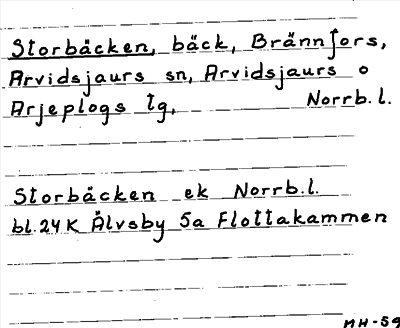 Storbäcken, bäck, Brännfors,
Arvidsjaurs sn, Arvidsjaurs o
Arjeplogs tg, Norrb.l.
Storbäcken ek Norrb.l.
bl.24K Älvsby 5a Flottakammen
MH-59